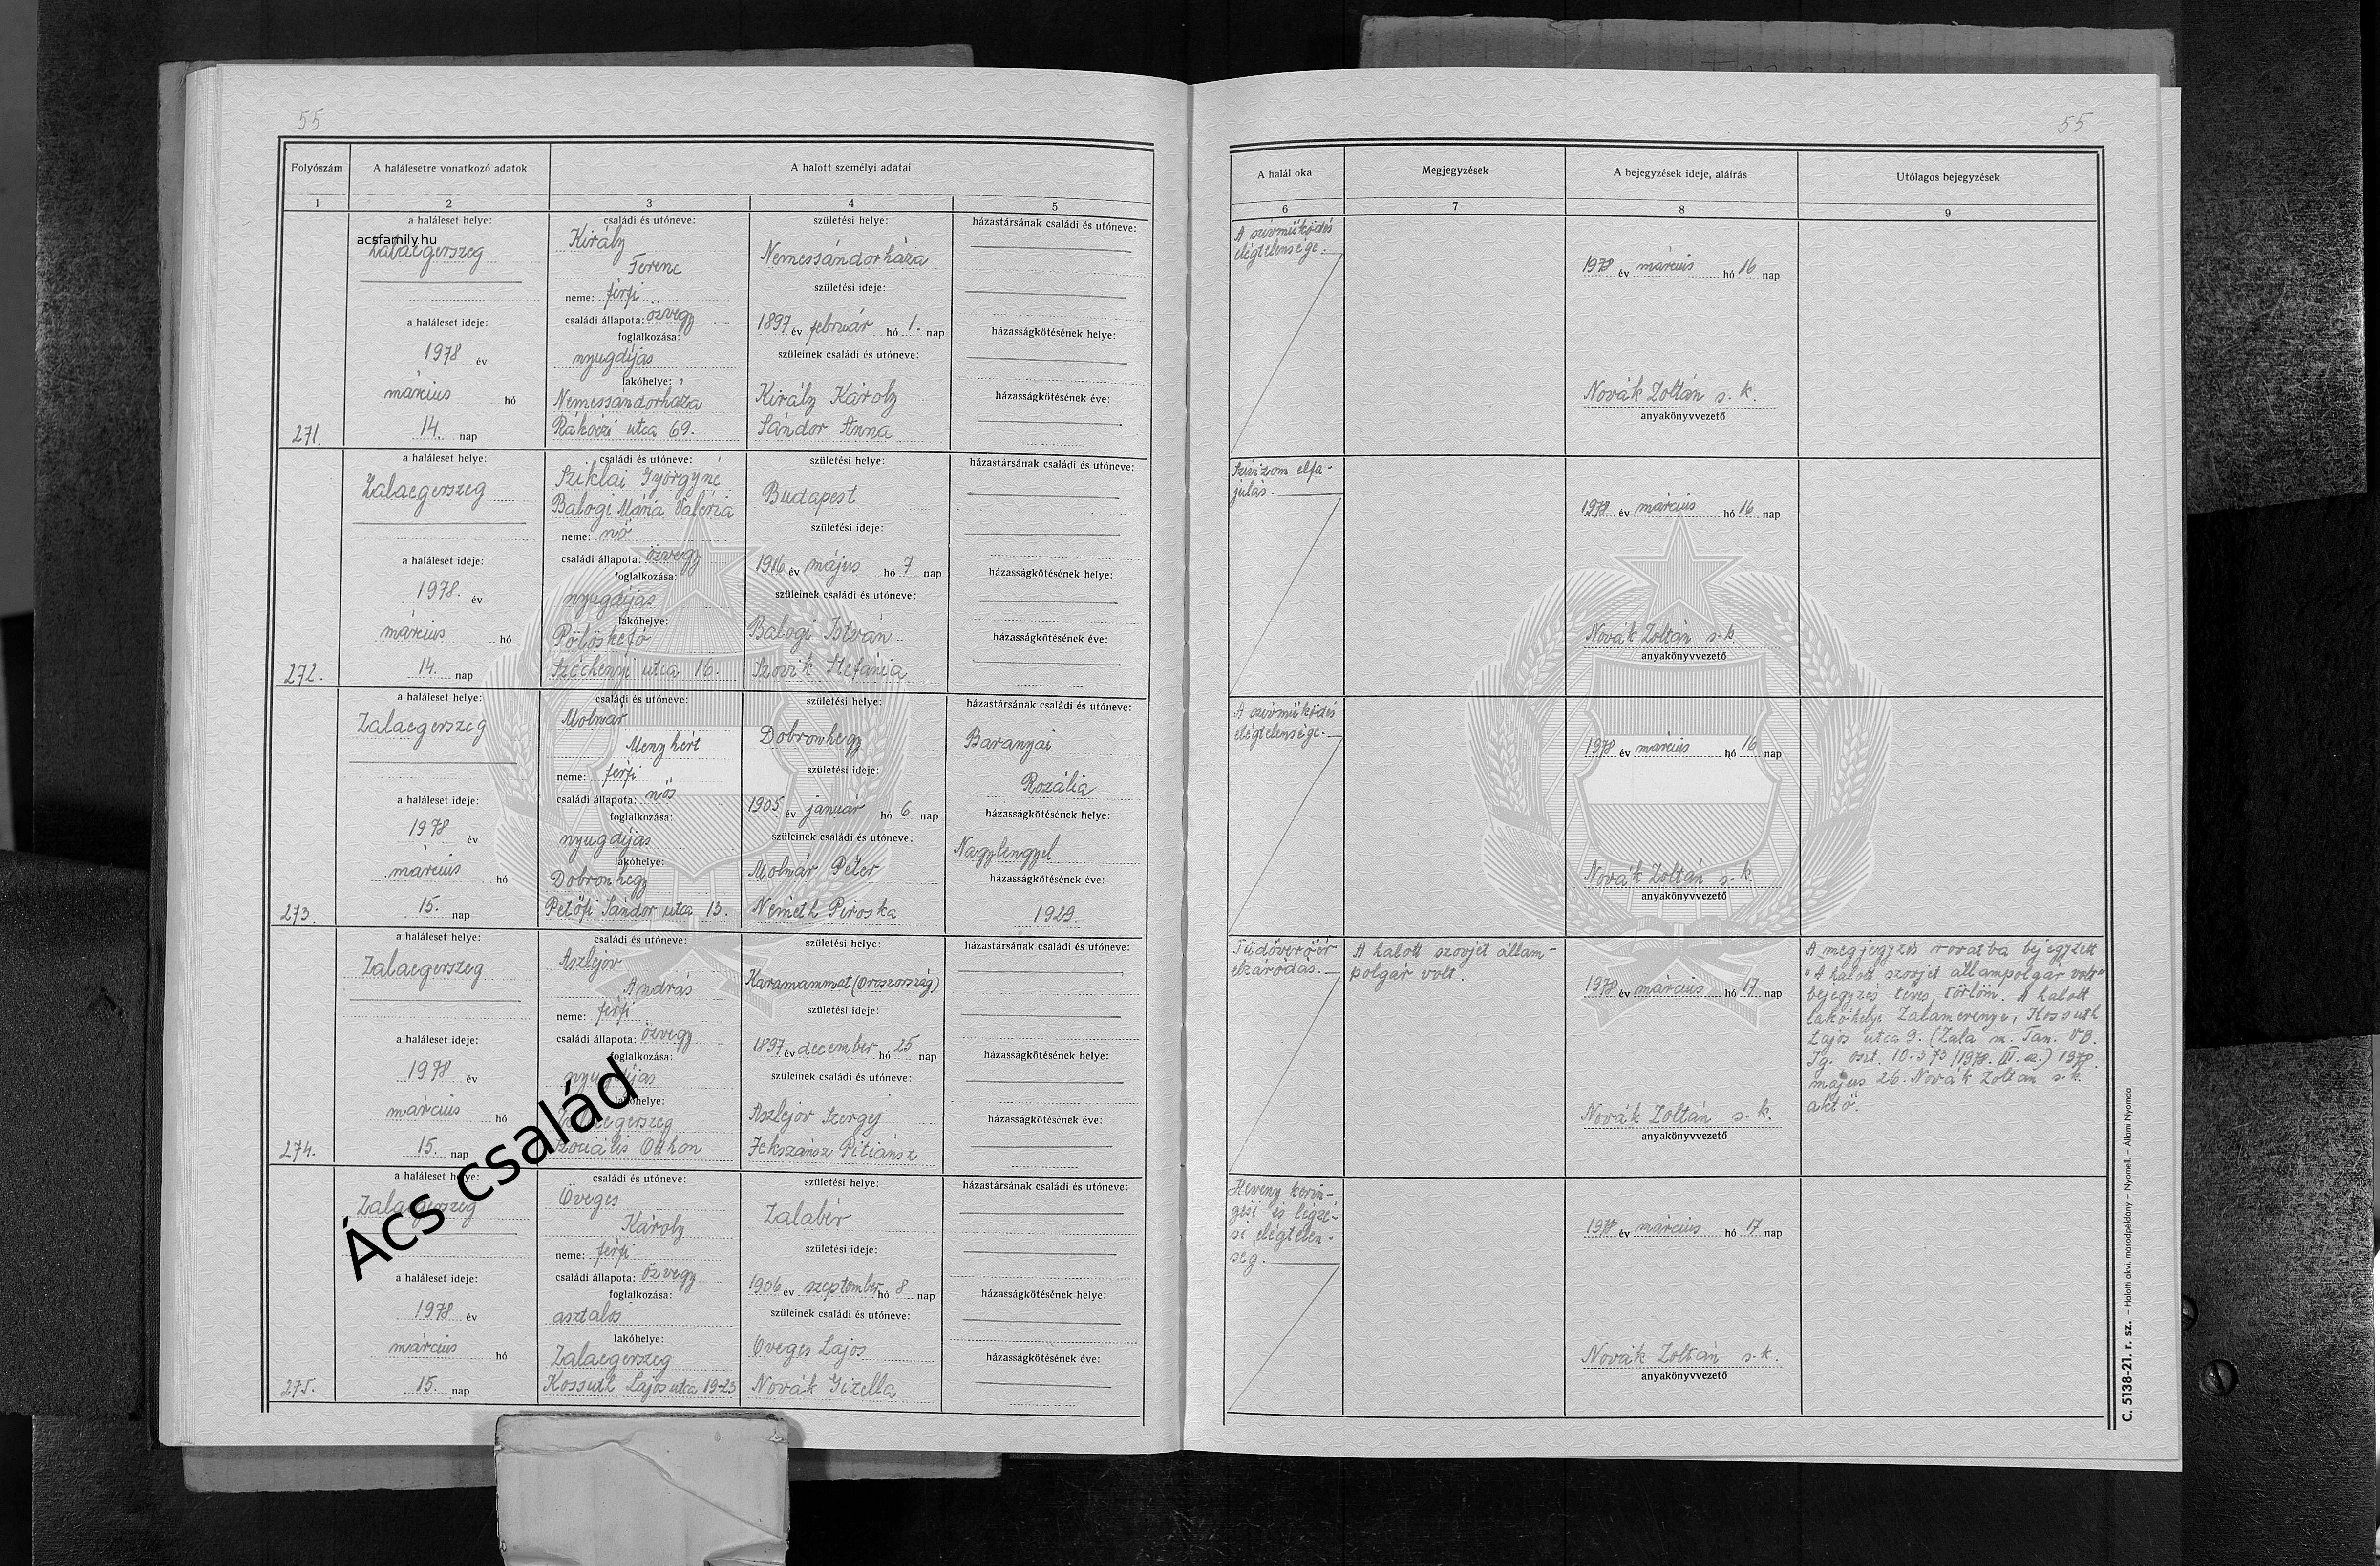 55
55
Folyószám
A halálesetre vonatkozó adatok
A halott személyi adatai
1
2
3
4
5
a haláleset helye:
acsfamily.hu
Zalaegerszeg
a haláleset ideje:
1978 év
március hó
14. nap
271.
családi és utóneve:
Király
Ferenc
neme: férfi
családi állapota: özvegy
foglalkozása:
nyugdíjas
lakóhelye:
Nemessándorháza
Rákóczi utca 69.
születési helye:
Nemessándorháza
születési ideje:
1897 év február hó 1. nap
szüleinek családi és utóneve:
Király Károly
Sándor Anna
házastársának családi és utóneve:
házasságkötésének helye:
házasságkötésének éve:
a haláleset helye:
Zalaegerszeg
a haláleset ideje:
1978. év
március hó
14. nap
272.
családi és utóneve:
Sziklai Györgyné
Balogi Mária Valéria
neme: nő
családi állapota: özvegy
foglalkozása:
nyugdíjas
lakóhelye:
Pölöskefő
Széchenyi utca 16.
születési helye:
Budapest
születési ideje:
1916 év május hó 7 nap
szüleinek családi és utóneve:
Balogi István
Szovik Stefánia
házastársának családi és utóneve:
házasságkötésének helye:
házasságkötésének éve:
a haláleset helye:
Zalaegerszeg
a haláleset ideje:
1978 év
március hó
15. nap
273.
családi és utóneve:
Molnár
Menyhért
neme: férfi
családi állapota: nős
foglalkozása:
nyugdíjas
lakóhelye:
Dobronhegy
Petőfi Sándor utca 13.
születési helye:
Dobronhegy
születési ideje:
1905 év január hó 6 nap
szüleinek családi és utóneve:
Molnár Péter
Németh Piroska
házastársának családi és utóneve:
Baranyai
Rozália
házasságkötésének helye:
Nagylengyel
házasságkötésének éve:
1929.
a haláleset helye:
Zalaegerszeg
a haláleset ideje:
1978 év
március hó
15. nap
274.
családi és utóneve:
Aszlejov
András
neme: férfi
családi állapota: özvegy
foglalkozása:
nyugdíjas
lakóhelye:
Zalaegerszeg
Szociális Otthon
születési helye:
Karamammat (Oroszország)
születési ideje:
1897 év december hó 25 nap
szüleinek családi és utóneve:
Aszlejov Szergej
Jekszánsz Pitiánsz
házastársának családi és utóneve:
házasságkötésének helye:
házasságkötésének éve:
Ács család
a haláleset helye:
Zalaegerszeg
a haláleset ideje:
1978 év
március hó
15. nap
275.
családi és utóneve:
Öveges
Károly
neme: férfi
családi állapota: özvegy
foglalkozása:
asztalos
lakóhelye:
Zalaegerszeg
Kossuth Lajos utca 19-23
születési helye:
Zalabér
születési ideje:
1906 év szeptember hó 8 nap
szüleinek családi és utóneve:
Öveges Lajos
Novák Gizella
házastársának családi és utóneve:
házasságkötésének helye:
házasságkötésének éve:
A halál oka
Megjegyzések
A bejegyzések ideje, aláírás
Utólagos bejegyzések
6
7
8
9
A szívműködés
elégtelensége.
1978 év március hó 16 nap
Novák Zoltán s. k.
anyakönyvvezető
Szívizom elfa-
julás.
1978 év március hó 16 nap
Novák Zoltán s. k.
anyakönyvvezető
A szívműködés
elégtelensége.
1978 év március hó 16 nap
Novák Zoltán s. k.
anyakönyvvezető
Tüdőverőér
elzáródás.
A halott szovjet állam-
polgár volt.
1978 év március hó 17 nap
Novák Zoltán s. k.
anyakönyvvezető
A megjegyzés rovatba bejegyzett
"A halott szovjet állampolgár volt"
bejegyzés téves, törlöm. A halott
lakóhelye Zalamerenye, Kossuth
Lajos utca 9. (Zala m. Tan. VB.
Ig. oszt. 10.373/1978. III. a.) 1978.
május 26. Novák Zoltán s. k.
Heveny kerin-
gési és légzé-
si elégtelen-
ség.
1978 év március hó 17 nap
Novák Zoltán s. k.
anyakönyvvezető
C. 5138-21. r. sz. – Halotti akvi. másodpéldány – Nyomell. – Állami Nyomda